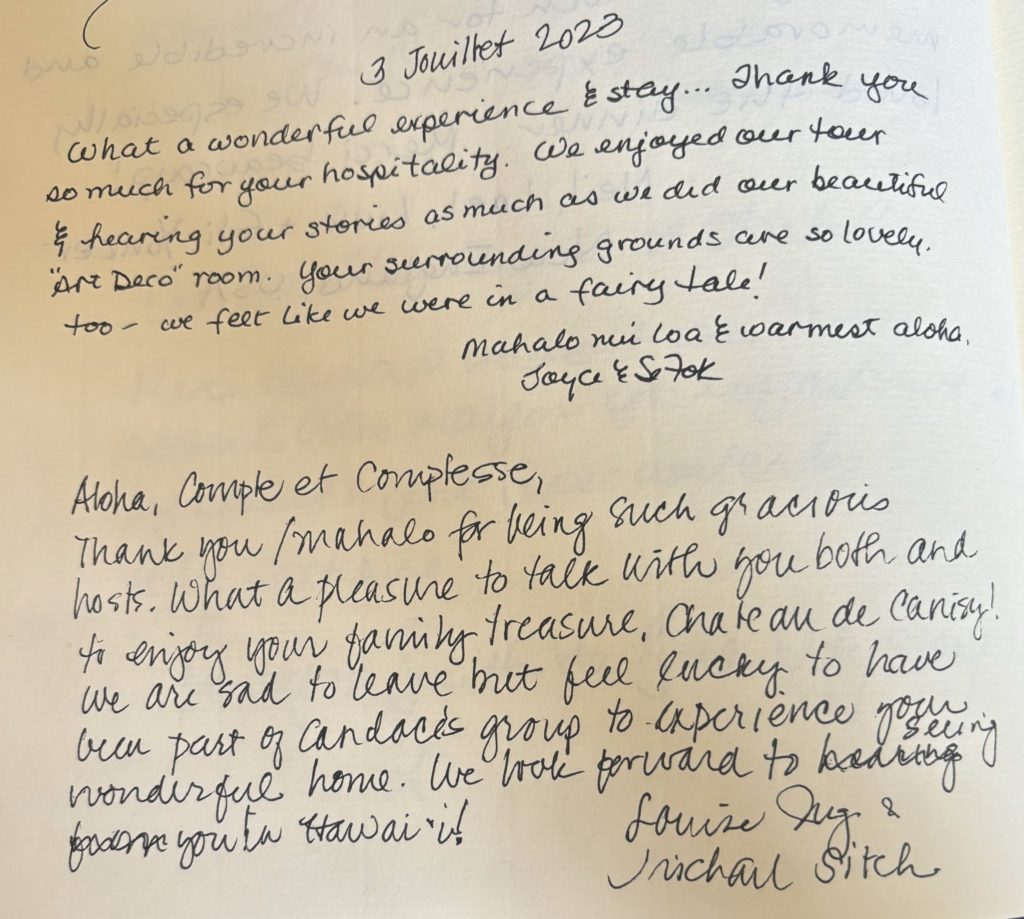 3 Jouillet 2023
What a wonderful experience & stay... Thank you
so much for your hospitality. We enjoyed our tour
& hearing your stories as much as we did our beautiful
"Art Deco" room. Your surrounding grounds are so lovely,
too - we felt like we were in a fairy tale!
Mahalo nui loa & warmest aloha,
Joyce &
Aloha, Compte et Comptesse,
Thank you/mahalo for being such gracious
hosts. What a pleasure to talk with you both and
to enjoy your family treasure, Chateau de Canisy!
We are sad to leave but feel lucky to have
been part of Candace's group to experience your
wonderful home. We look forward to seeing
you in Hawai'i!
Louise &
Michael Sitch